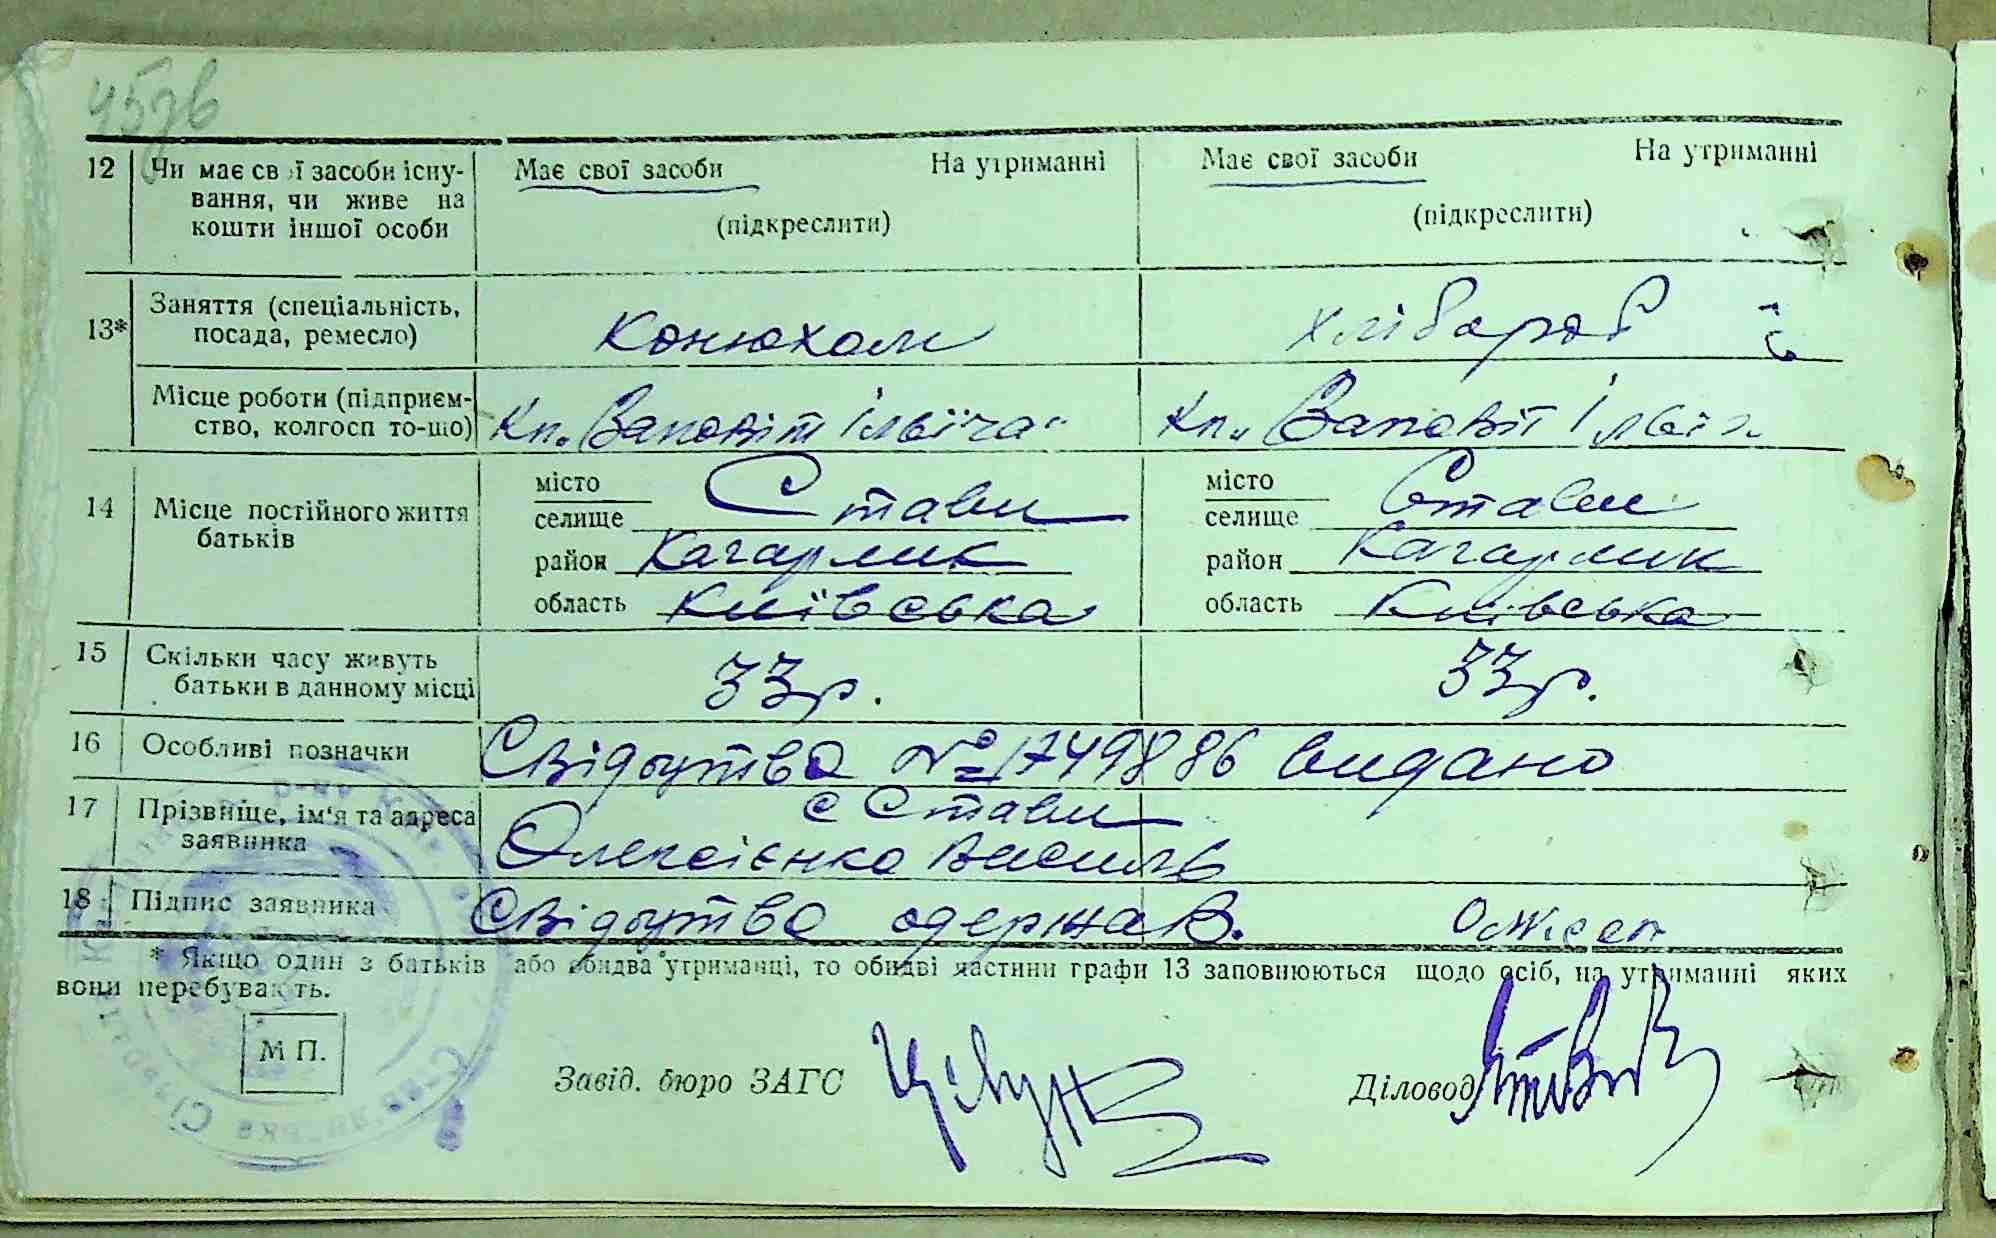 45зв
12 Чи має свої засоби існу- Має свої засоби На утриманні Має свої засоби На утриманні
вання, чи живе на
кошти іншої особи (підкреслити) (підкреслити)
13* Заняття (спеціальність, посада, ремесло) Конюхом хлібороб
Місце роботи (підприєм-
ство, колгосп то-що) Кп. "Заповіт Ілвїча" Кп. "Заповіт Ілвїча
14 Місце постійного життя батьків
місто Стави місто Стави
селище селище
район Кагарлик район Кагарлик
область Київська область Київська
15 Скільки часу живуть
батьки в данному місці 33 р. 33 р.
16 Особливі позначки Свідоцтво № 1749886 видано
17 Прізвище, ім'я та адреса с Стави
заявника Олексієнко Василь
18 Підпис заявника Свідоцтво одержав.
* Якщо один з батьків або обидва утриманці, то обидві частини графи 13 заповнюються щодо осіб, на утриманні яких
вони перебувають.
М П. Завід. бюро ЗАГС Діловод